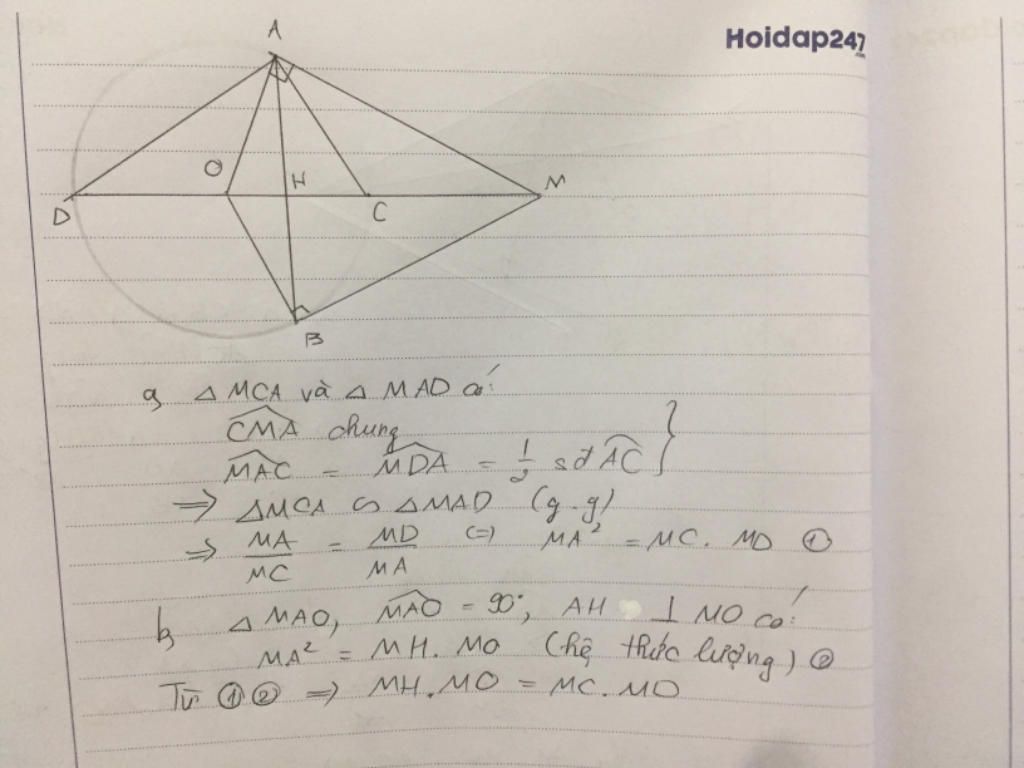 Hoidap247
A
O
H
M
D
C
B
a, △ MCA và △ MAD có:
$\widehat{CMA}$ chung
$\widehat{MAC}$ = $\widehat{MDA}$ = $\frac{1}{2}$ sđ $\widehat{AC}$ }
⇒ △MCA ∽ △MAD (g.g)
⇒ $\frac{MA}{MC}$ = $\frac{MD}{MA}$ ⇔ MA² = MC. MD ①
b, △ MAO, $\widehat{MAO}$ = 90°, AH ⊥ MO có:
MA² = MH. MO (hệ thức lượng) ②
Từ ① ② ⇒ MH.MO = MC.MD